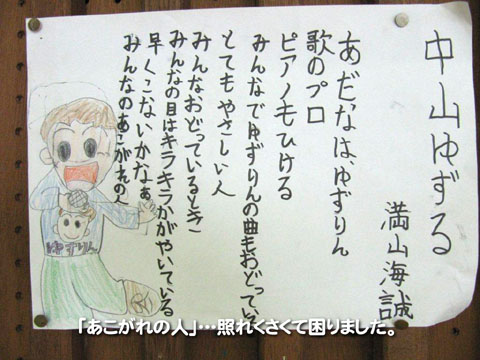 中山ゆずる
満山海誠
あだなは、ゆずりん
歌のプロ
ピアノもひける
みんなでゆずりんの曲もおどっている
とてもやさしい人
みんなおどっているとき
みんなの目はキラキラかがやいている
早くこないかなぁ
みんなのあこがれの人
ゆずりん
「あこがれの人」…照れくさくて困りました。